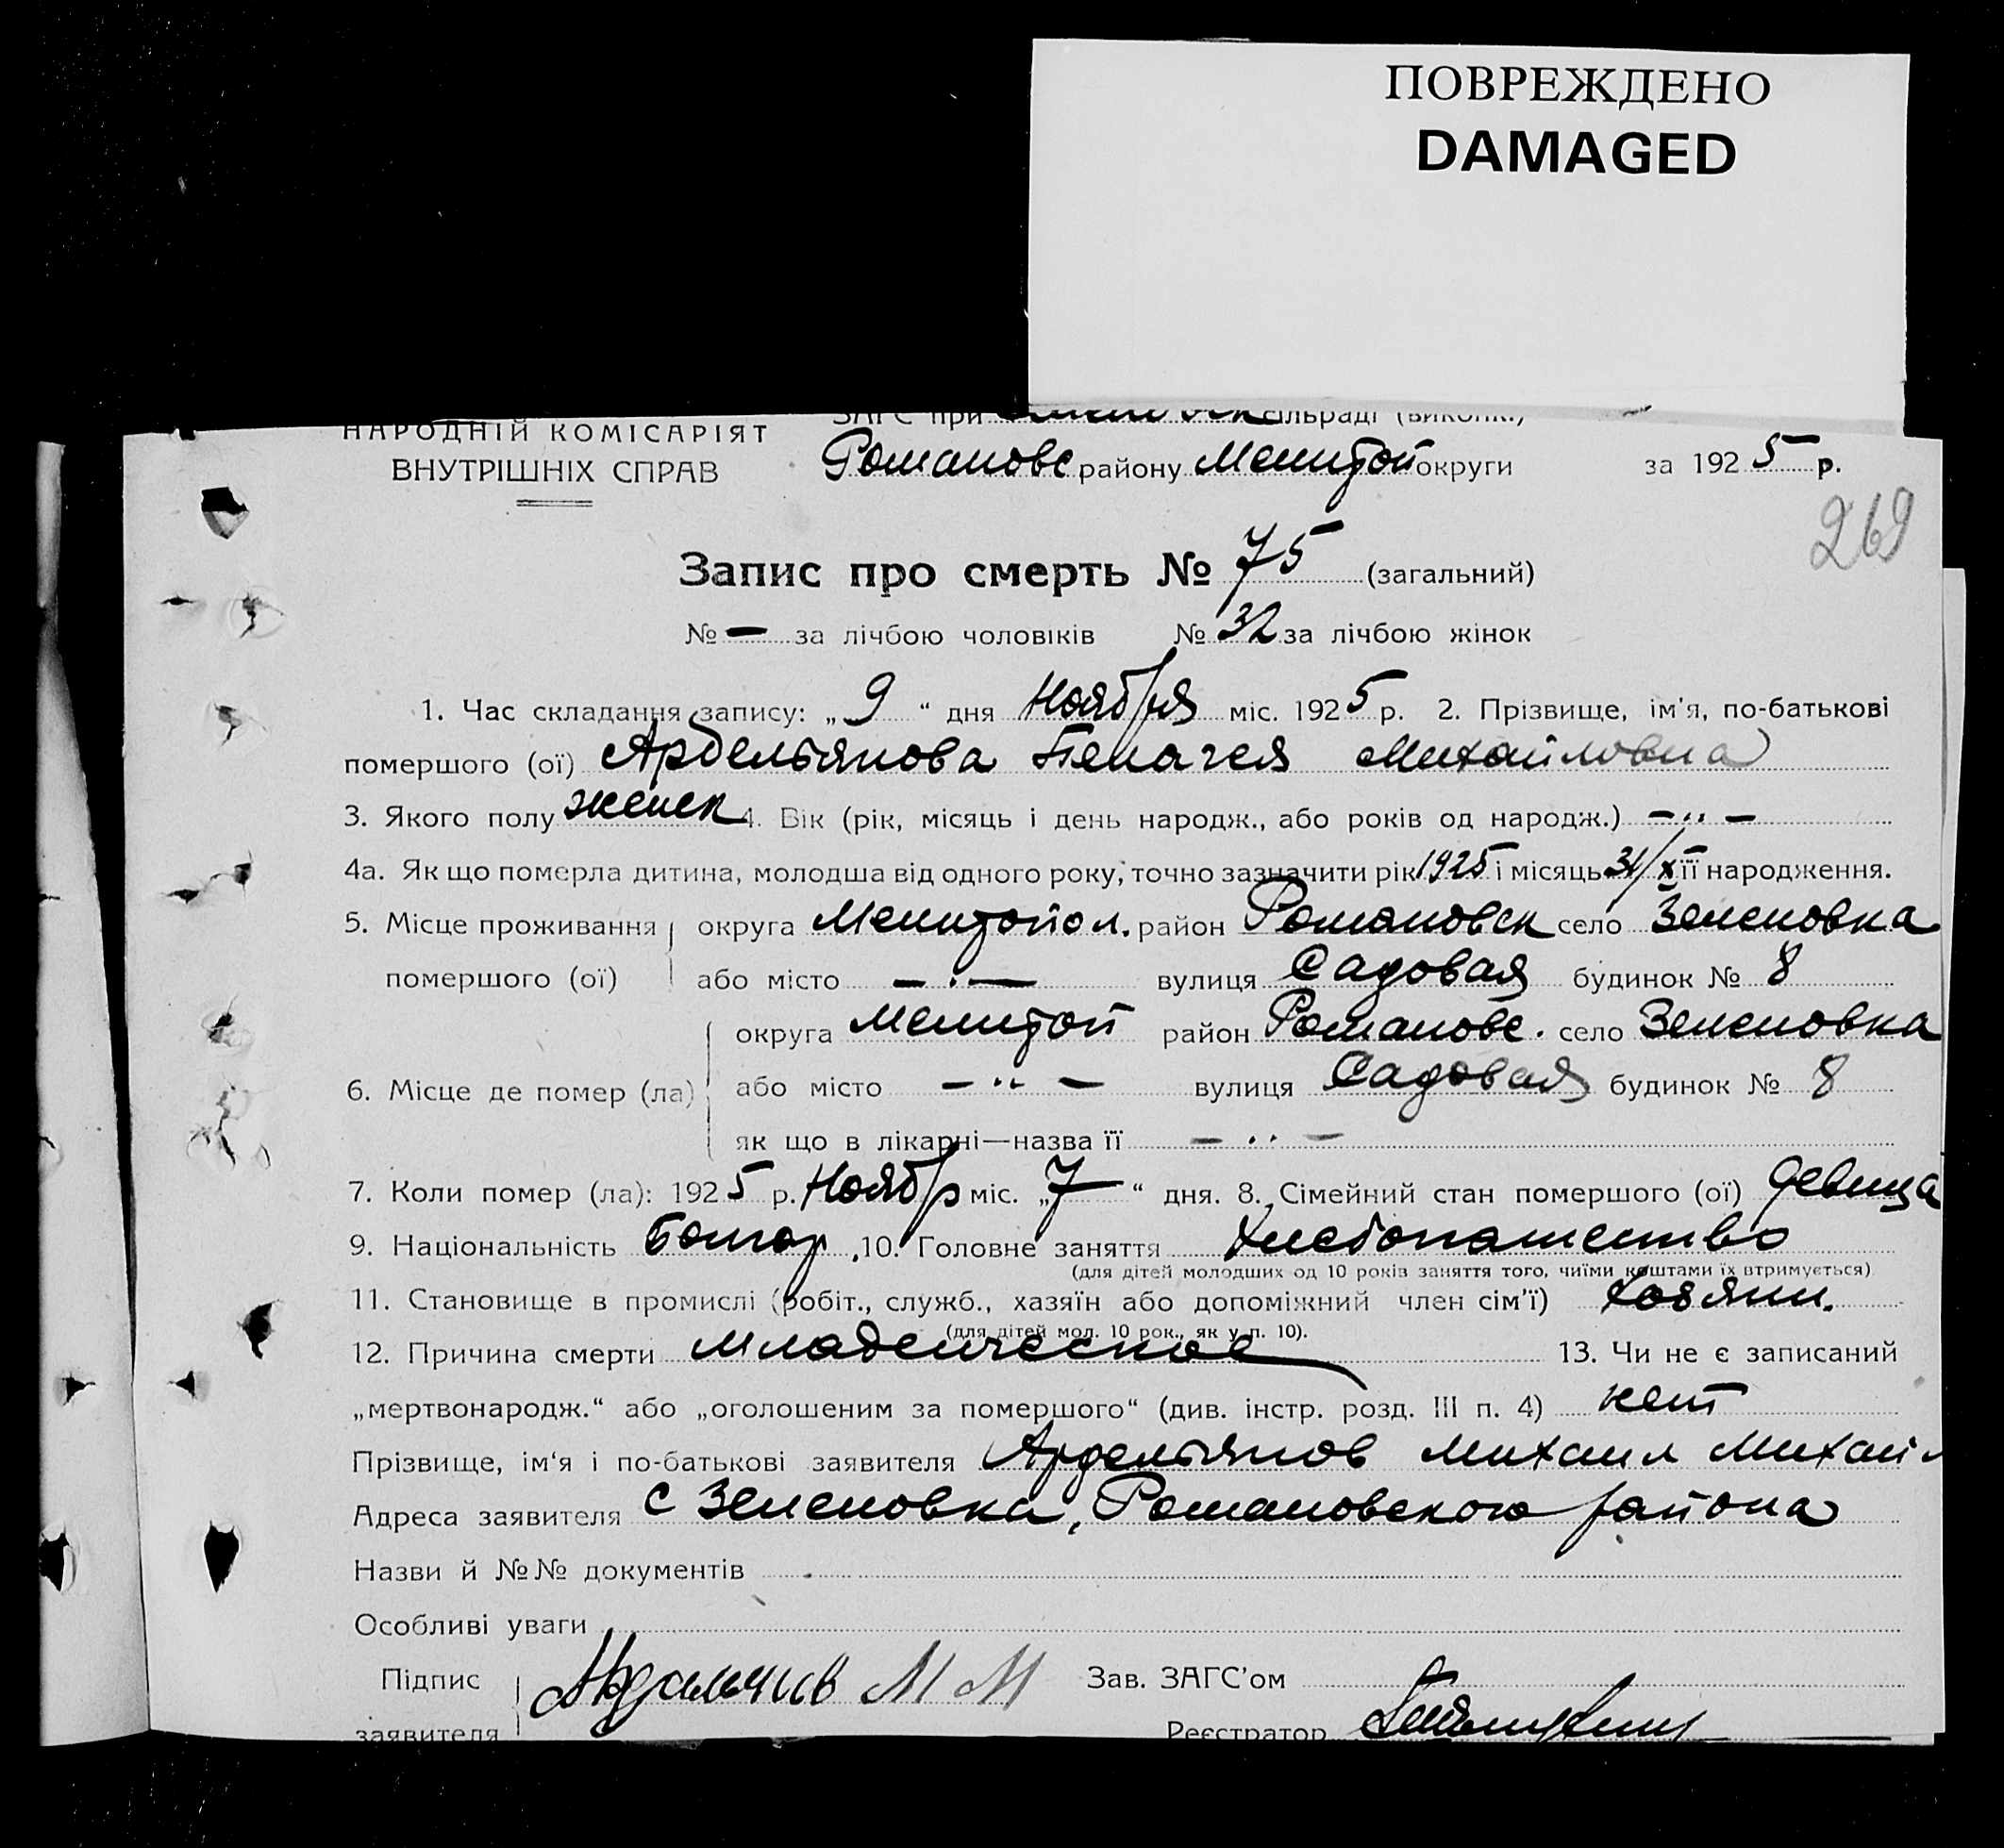 ПОВРЕЖДЕНО
DAMAGED
ЗАГС при сільраді (виконк.)
НАРОДНІЙ КОМІСАРІЯТ
ВНУТРІШНІХ СПРАВ
Романовс району Мелитоп округи за 1925 р.
269
Запис про смерть № 75 (загальний)
№ — за лічбою чоловіків № 32 за лічбою жінок
1. Час складання запису: „ 9 “ дня Ноября міс. 1925 р. 2. Прізвище, ім'я, по-батькові
помершого (ої) Ардельянова Пелагея Михайловна
3. Якого полу женск 4. Вік (рік, місяць і день народж., або років од народж.) — ·· —
4а. Як що померла дитина, молодша від одного року, точно зазначити рік 1925 і місяць 31/X її народження.
5. Місце проживання округа Мелитопол. район Романовск село Зеленовка
помершого (ої) або місто — · — вулиця Садовая будинок № 8
округа Мелитоп район Романовс. село Зеленовка
6. Місце де помер (ла) або місто — ·· — вулиця Садовая будинок № 8
як що в лікарні—назва її — ·· —
7. Коли помер (ла): 1925 р. Ноябр міс. „ 7 “ дня. 8. Сімейний стан помершого (ої) девица
9. Національність Болгар. 10. Головне заняття Хлебопашество
(для дітей молодших од 10 років заняття того, чиїми коштами їх втримується)
11. Становище в промислі (робіт., служб., хазяїн або допоміжний член сім'ї) Хозяин.
(для дітей мол. 10 рок., як у п. 10).
12. Причина смерти Младенческое 13. Чи не є записаний
„мертвонародж.“ або „оголошеним за помершого“ (див. інстр. розд. III п. 4) нет
Прізвище, ім‘я і по-батькові заявителя Ардельянов Михаил Михаил
Адреса заявителя с Зеленовка, Романовского района
Назви й №№ документів
Особливі уваги
Підпис М М Зав. ЗАГС'ом
заявителя Реєстратор